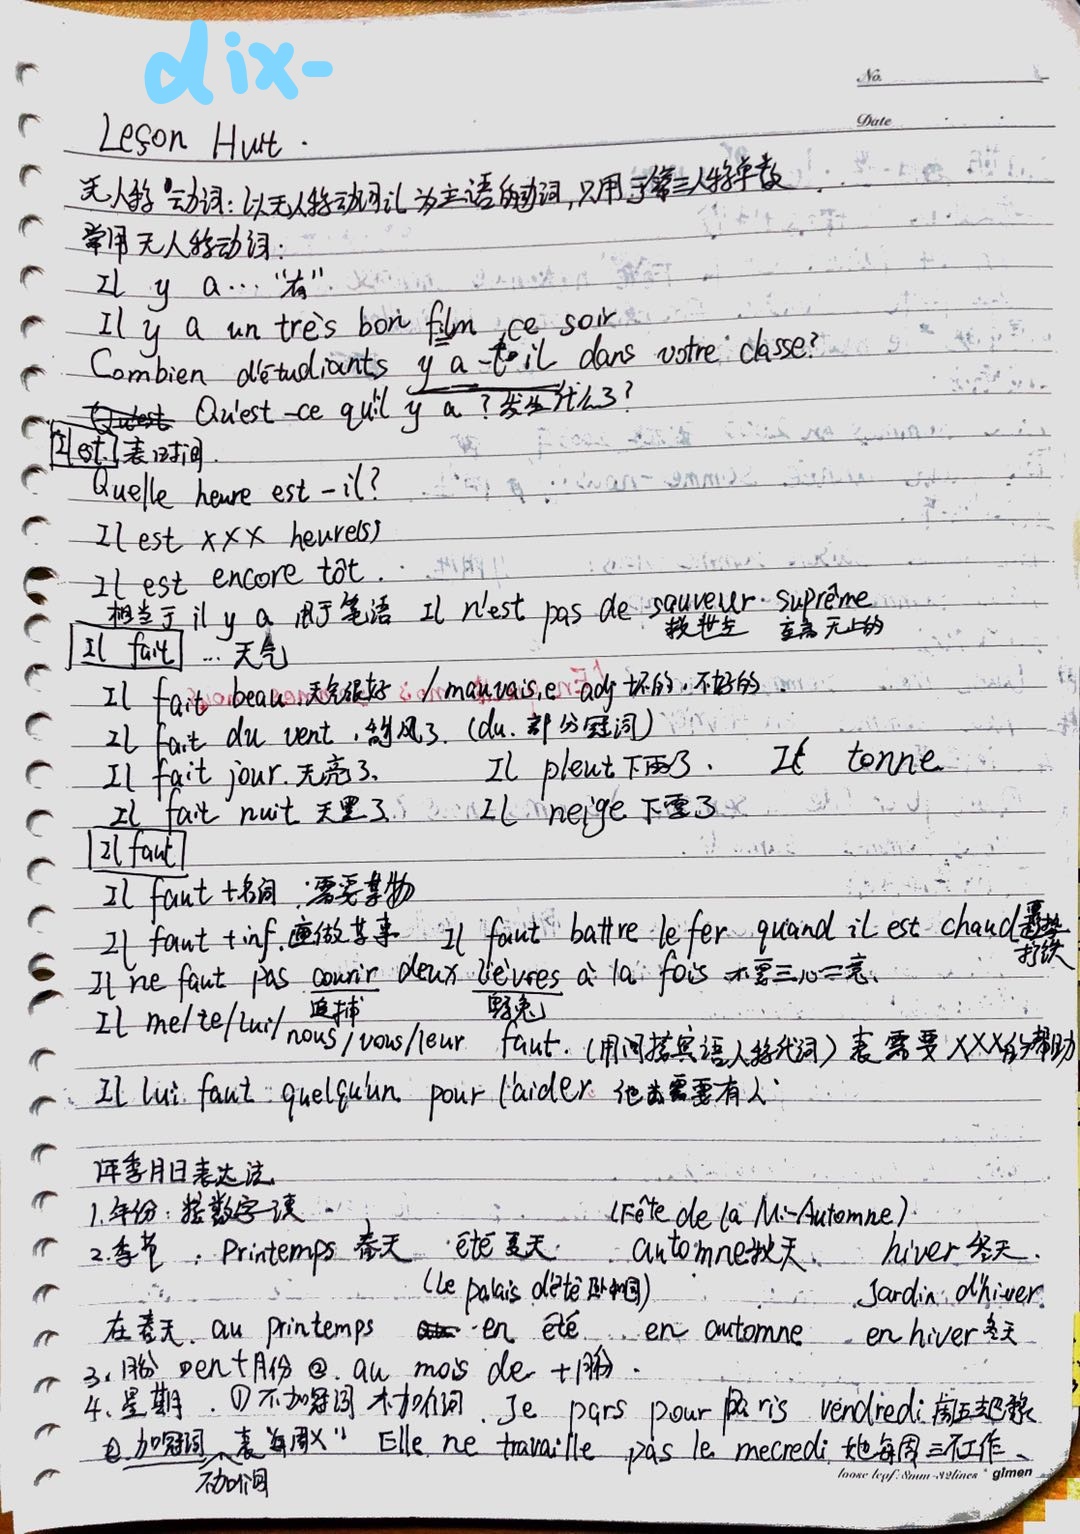 dix-
No.
Date
Leçon Huit.
无人称动词：以无人称动词il为主语的动词，只用于第三人称单数
常用无人称动词：
Il y a... "有"
Il y a un très bon film ce soir
Combien d'étudiants y a-t-il dans votre classe?
Qu'est-ce qu'il y a ? 发生什么了?
Il est 表时间.
Quelle heure est-il?
Il est xxx heure(s)
Il est encore tôt.
相当于 il y a 用于笔语 Il n'est pas de sauveur suprême
救世主 至高无上的
Il fait ... 天气
Il fait beau 天气很好 / mauvais,e adj 坏的，不好的
Il fait du vent. 刮风了. (du. 部分冠词)
Il fait jour. 天亮了. Il pleut 下雨了. Il tonne
Il fait nuit 天黑了 Il neige 下雪了
Il faut
Il faut +名词：需要某物
Il faut + inf. 应做某事 Il faut battre le fer quand il est chaud 打铁
Il ne faut pas courir deux lièvres à la fois 不要三心二意.
追捕 野兔
Il me/te/lui/nous/vous/leur faut. (用间接宾语人称代词) 表需要XXX的帮助
Il lui faut quelqu'un pour l'aider 他需要有人
年季月日表达法.
1. 年份：按数字读 (Fête de la Mi-Automne)
2. 季节：Printemps 春天 été 夏天 automne 秋天 hiver 冬天.
(Le palais d'été) Jardin d'hiver.
在春天. au printemps en été en automne en hiver 冬天
3. 月份 ① en+月份 ② au mois de +月份.
4. 星期. ① 不加冠词 不加介词. Je pars pour Paris vendredi 周五
② 加冠词，表"每周X" Elle ne travaille pas le mecredi 她每周三不工作.
不加介词
loose leaf. 8mm-32lines gimen